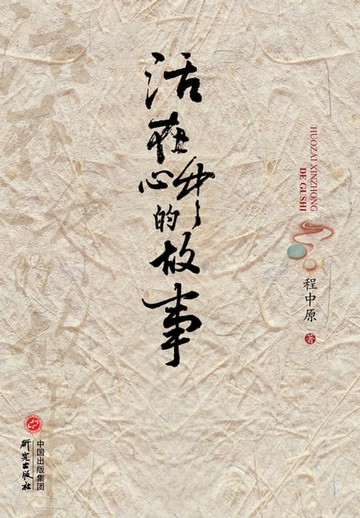 活在心中的故事
HUOZAI XINZHONG
DE GUSHI
程中原 著
中国出版集团
研究出版社